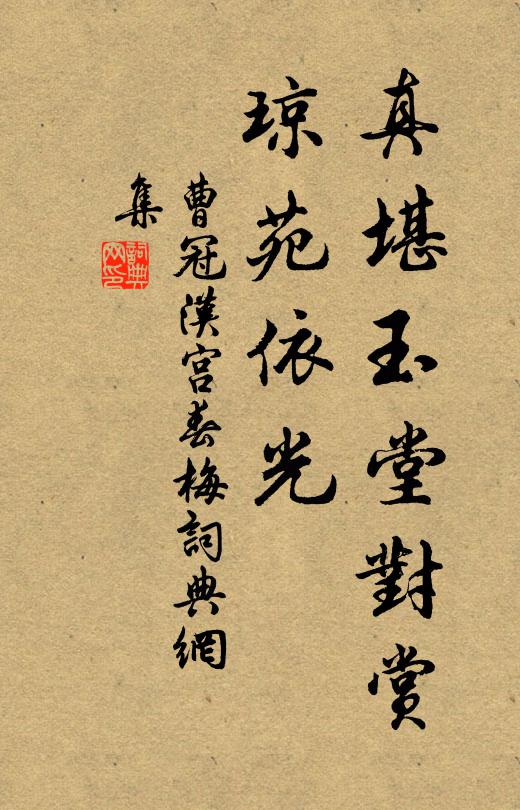 真堪玉堂對賞
琼苑依光
曹冠漢宫春梅詞典網
集
詞典
网印